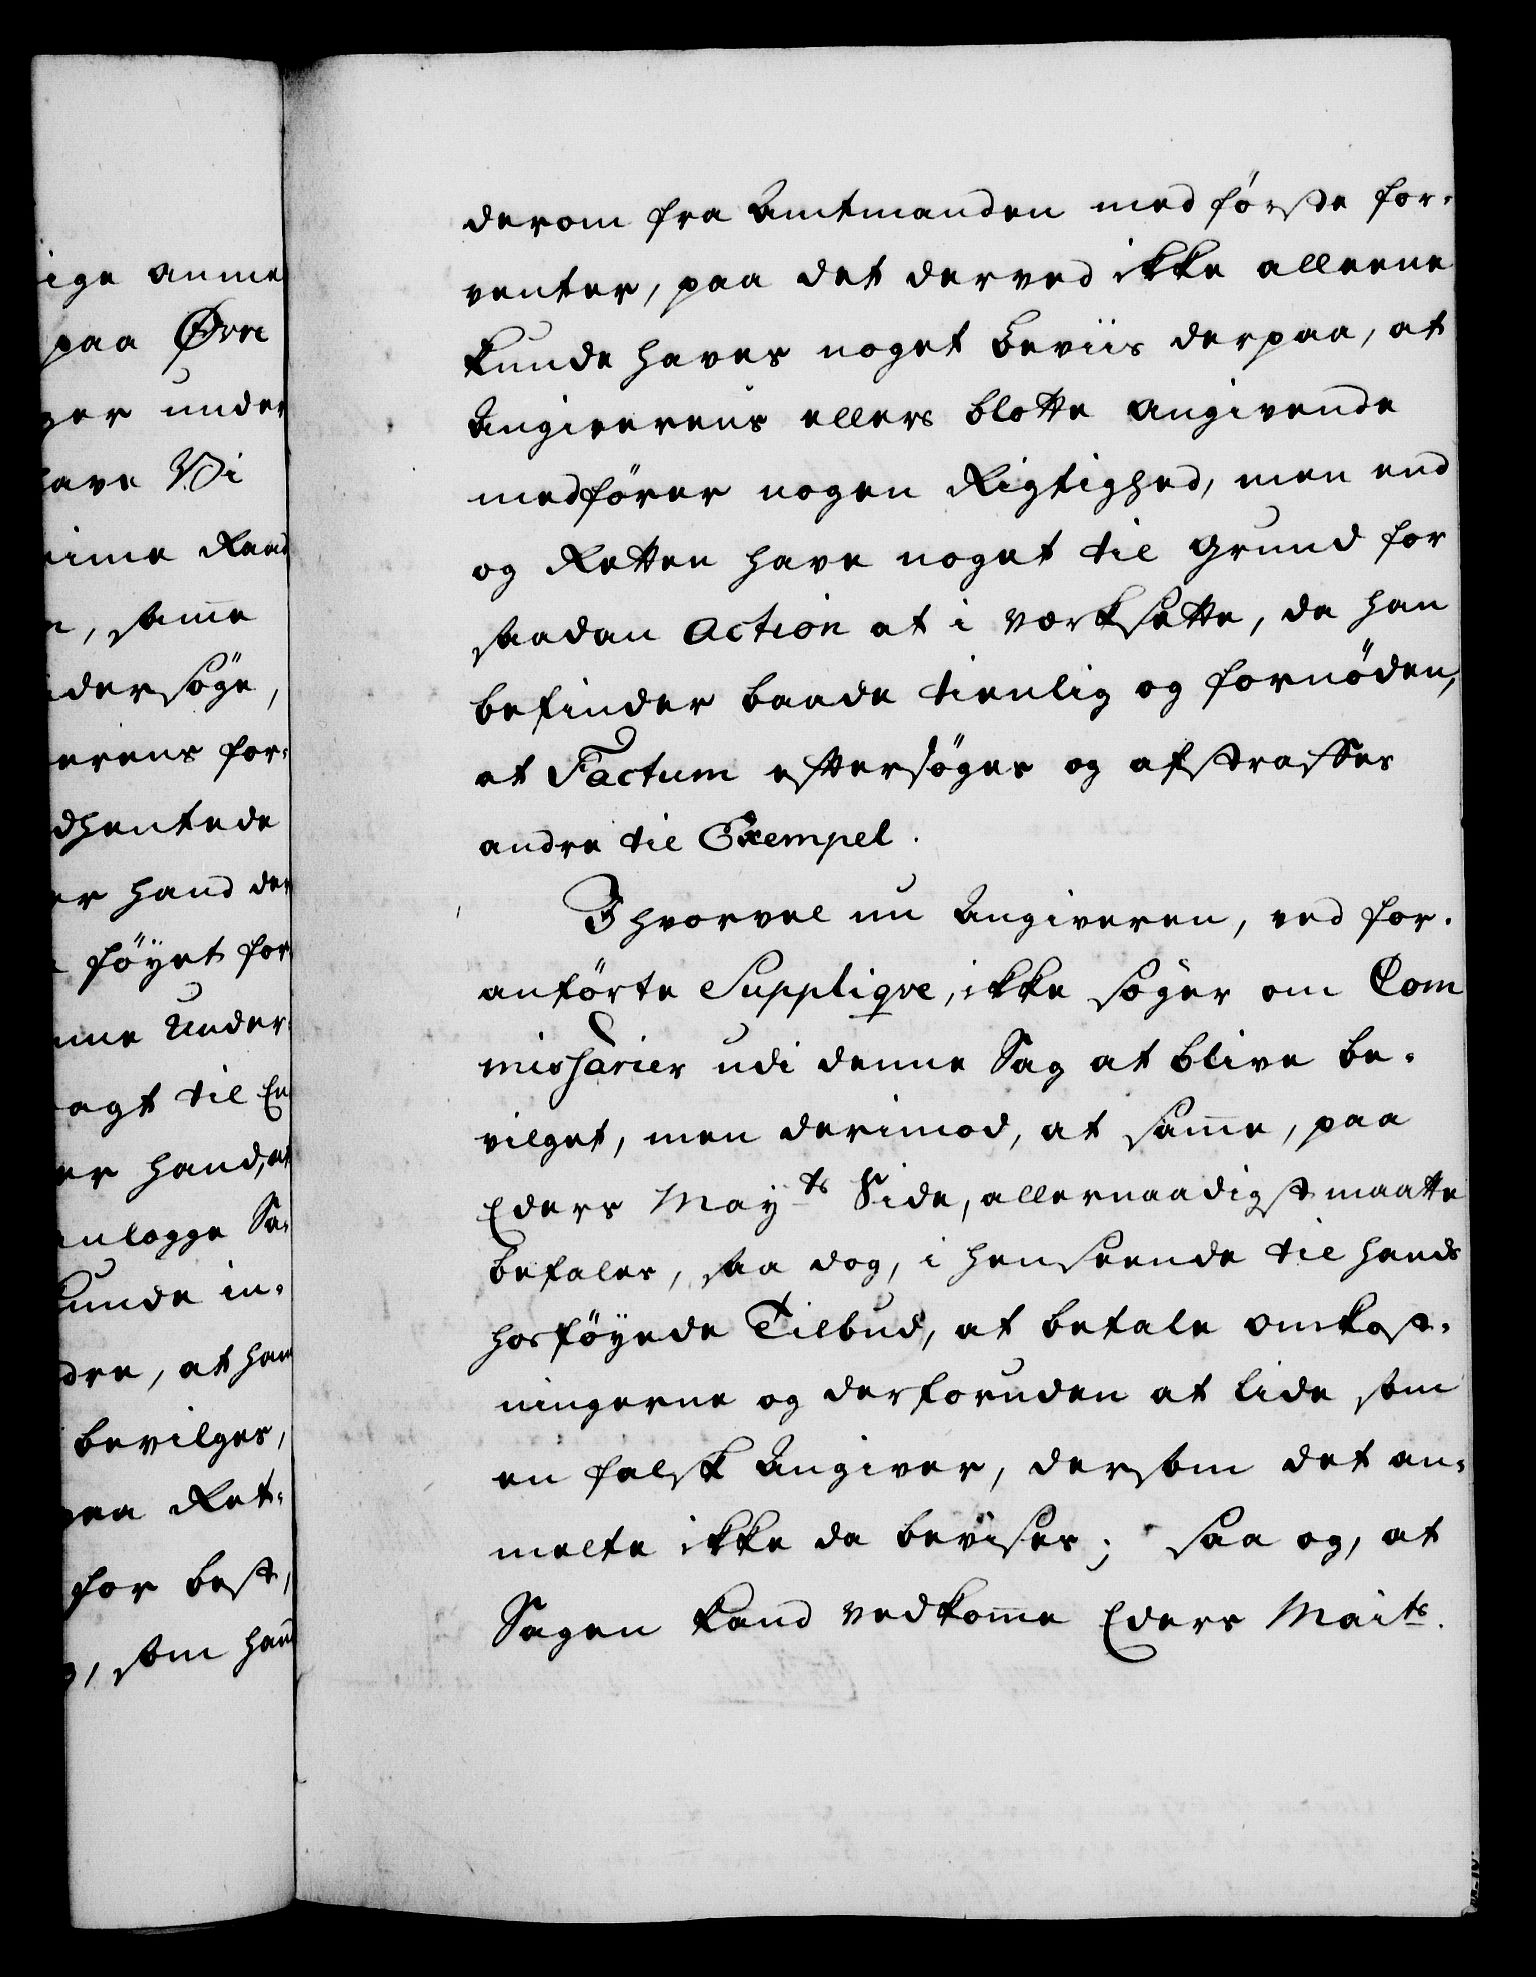 ige anme
paa Øvre
ger under
have Vi
eime Raad
n, sam̄e
dersøge,
erens for-
dhentede
er hand der
føyet for
nne Under-
agt til En
er hand, at
anlagge Sa-
kunde in-
dre, at ham
bevilges,
paa Ret-
for best,
, som ham
derom fra Amtmanden med første for-
venter, paa det derved ikke alleene
kunde haves noget beviis derpaa, at
Angiverens ellers blotte angivende
medfører nogen Rigtighed, men end
og Retten have noget til grund for
saadan Action at i værksætte, da han
befinder baade tienlig og fornøden,
at Factum eftersøges og afstraffes
andre til Exempel.
Ihvorvel nu Angiveren, ved for-
anførte Suppliqve, ikke søger om Com
missarier udi denne Sag at blive be-
vilget, men derimod, at sam̄e, paa
Eders May<sup>ts</sup> Side, allernaadigst maatte
befales, saa dog, i henseende til hands
hosføyede Tilbud, at betale omkost-
ningerne og desforuden at lide som
en falsk Angiver, dersom det an-
melte ikke da bevises; saa og, at
Sagen kand vedkom̄e Eders Maits.